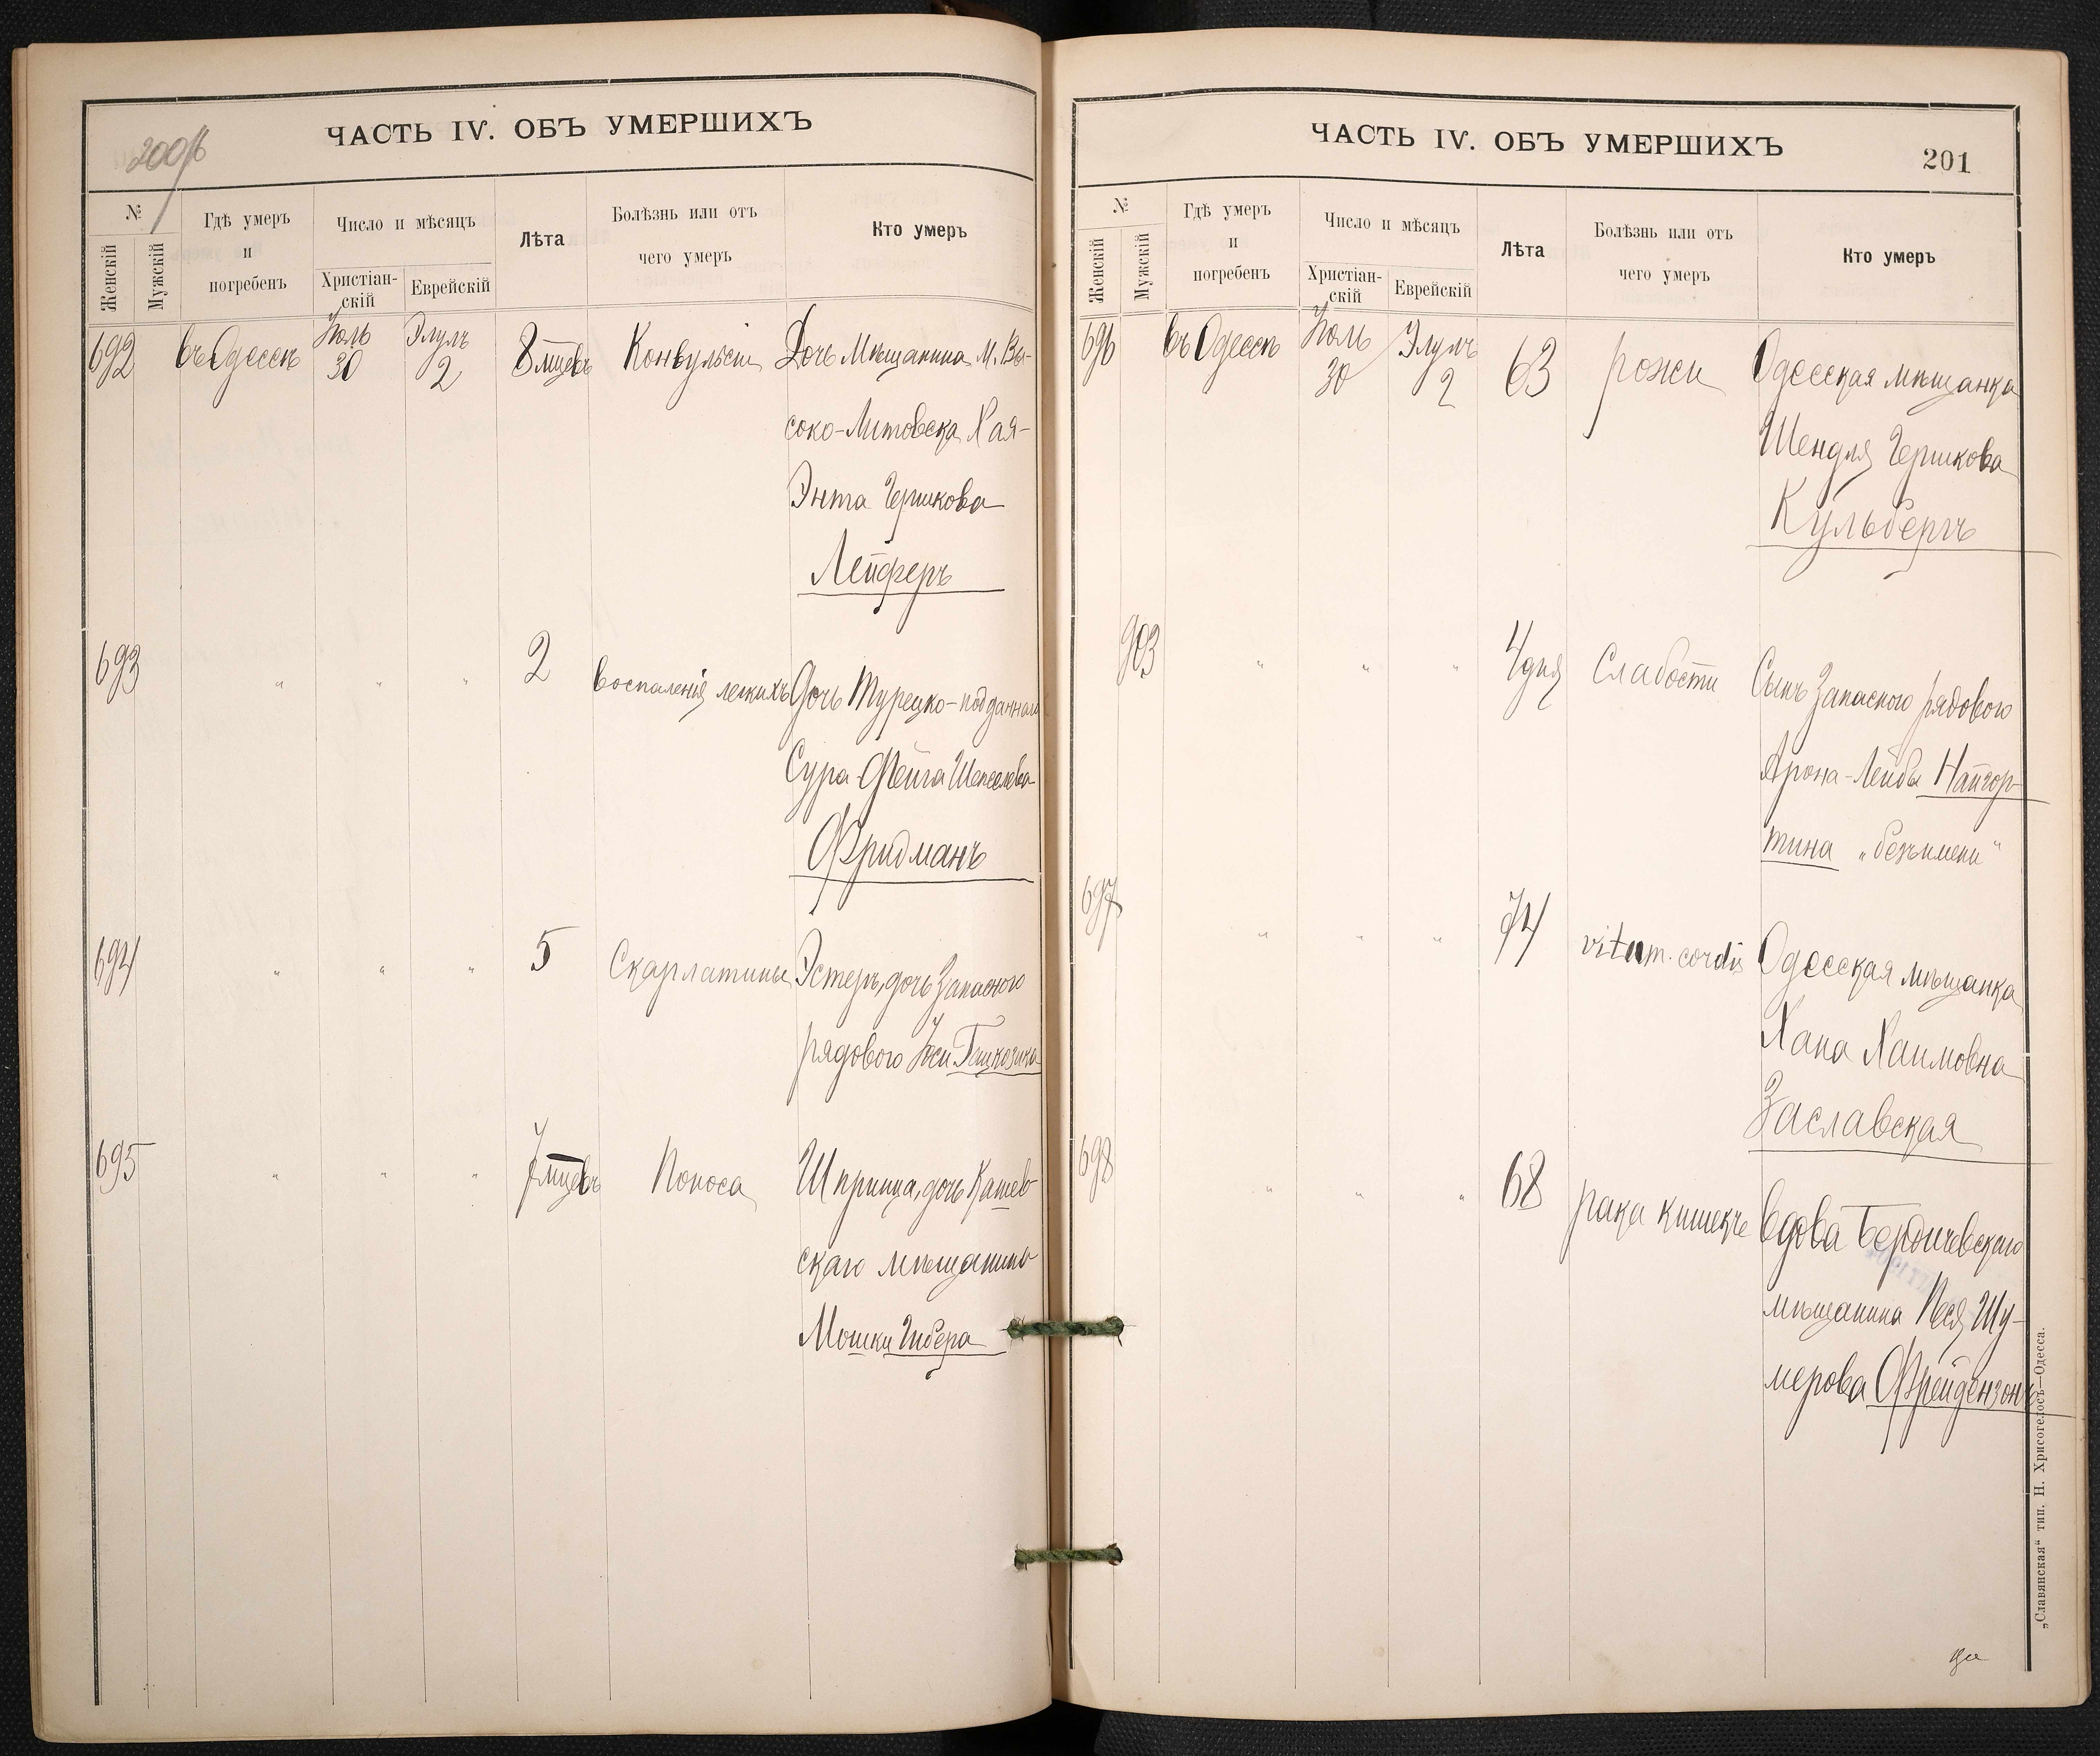 200/б
ЧАСТЬ IV. ОБЪ УМЕРШИХЪ
№
Женскій
Мужскій
Гдѣ умеръ
и
погребенъ
Число и мѣсяцъ
Христіан-
скій
Еврейскій
Лѣта
Болѣзнь или отъ
чего умеръ
Кто умеръ
692 въ Одессѣ Іюль 30 Элулъ 2 8 мцевъ Конвульсіи Дочь Мѣщанина М. Вы-
соко-Литовска Хая-
Энта Гершкова
Лейферъ
693 " " " 2 воспаленія легкихъ Дочь Турецко-подданнаго
Сура-Фейга Шепселева
Фридманъ
694 " " " 5 Скарлатины Эстеръ, дочь Запасного
рядового Іоси
695 " " " 7 мцевъ Поноса Шпринца, дочь Кашев-
скаго мѣщанина
Мошки Гибера
ЧАСТЬ IV. ОБЪ УМЕРШИХЪ
201
№
Женскій
Мужскій
Гдѣ умеръ
и
погребенъ
Число и мѣсяцъ
Христіан-
скій
Еврейскій
Лѣта
Болѣзнь или отъ
чего умеръ
Кто умеръ
696 въ Одессѣ Іюль 30 Элулъ 2 63 рожи Одесская мѣщанка
Шендля Гершкова
Кульбергъ
903 " " " 4 дня Слабости Сынъ Запасного рядового
Арона-Лейбы Найгор-
тина „безъ имени"
697 " " " 74 vitium cordis Одесская мѣщанка
Хана Хаимовна
Заславская
698 " " " 68 рака кишекъ Вдова Бердичевскаго
мѣщанина Песя Шу-
мерова Фрейдензонъ
„Славянская" тип. Н. Хрисогелосъ—Одесса.